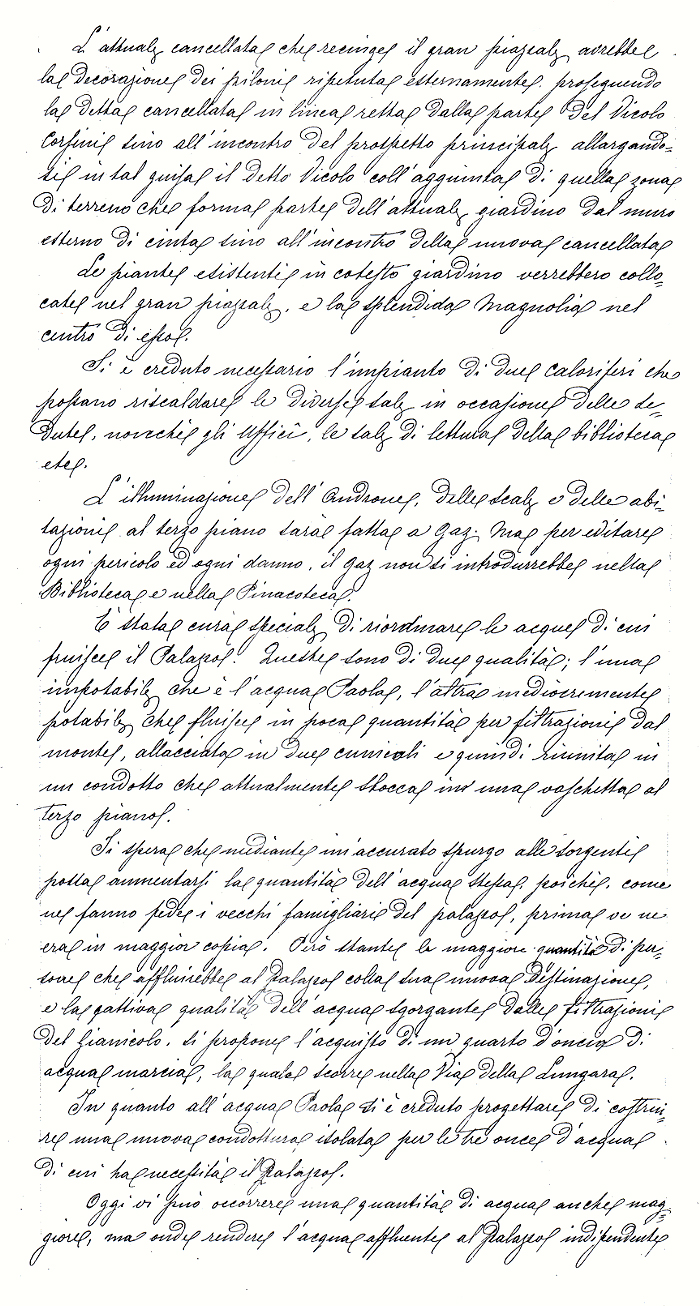 L'attuale cancellata che recinge il gran piazzale avrebbe
la decorazione dei piloni ripetuta esternamente, proseguendo
la detta cancellata in linea retta dalla parte del Vicolo
Corsini sino all'incontro del prospetto principale allargando=
si in tal guisa il detto Vicolo coll'aggiunta di quella zona
di terreno che forma parte dell'attuale giardino dal muro
esterno di cinta sino all'incontro della nuova cancellata
Le piante esistenti in cotesto giardino verrebbero collo=
cate nel gran piazzale, e la splendida Magnolia nel
centro di esso.
Si è creduto necessario l'impianto di due caloriferi che
possano riscaldare le diverse sale in occasione delle se=
dute, nonchè gli Uffici, le sale di lettura della biblioteca
etc.
L'illuminazione dell'Androne, delle scale e delle abi=
tazioni al terzo piano sarà fatta a Gaz. Ma per evitare
ogni pericolo ed ogni danno, il gaz non si introdurrebbe nella
Biblioteca e nella Pinacoteca.
È stata cura speciale di riordinare le acque di cui
fruisce il Palazzo. Queste sono di due qualità; l'una
impotabile che è l'acqua Paola, l'altra mediocremente
potabile che fluisce in poca quantità per filtrazioni dal
monte, allacciata in due cunicoli e quindi riunita in
un condotto che attualmente sbocca in una vaschetta al
terzo piano.
Si spera che mediante un'accurato spurgo alle sorgenti
possa aumentarsi la quantità dell'acqua stessa, poichè, come
ne fanno fede i vecchi famigliari del palazzo, prima ve ne
era in maggior copia. Però stante la maggiore quantità di per=
sone che affluirebbe al Palazzo colla sua nuova destinazione,
e la cattiva qualità dell'acqua sgorgante dalle filtrazioni
del Gianicolo, si propone l'acquisto di un quarto d'oncia di
acqua marcia, la quale scorre nella Via della Lungara.
In quanto all'acqua Paola si è creduto progettare di costrui=
re una nuova conduttura isolata per le tre oncie d'acqua
di cui ha necessità il Palazzo.
Oggi vi può occorrere una quantità di acqua anche mag=
giore, ma onde rendere l'acqua affluente al Palazzo indipendente